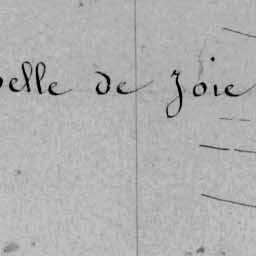 elle de Joie